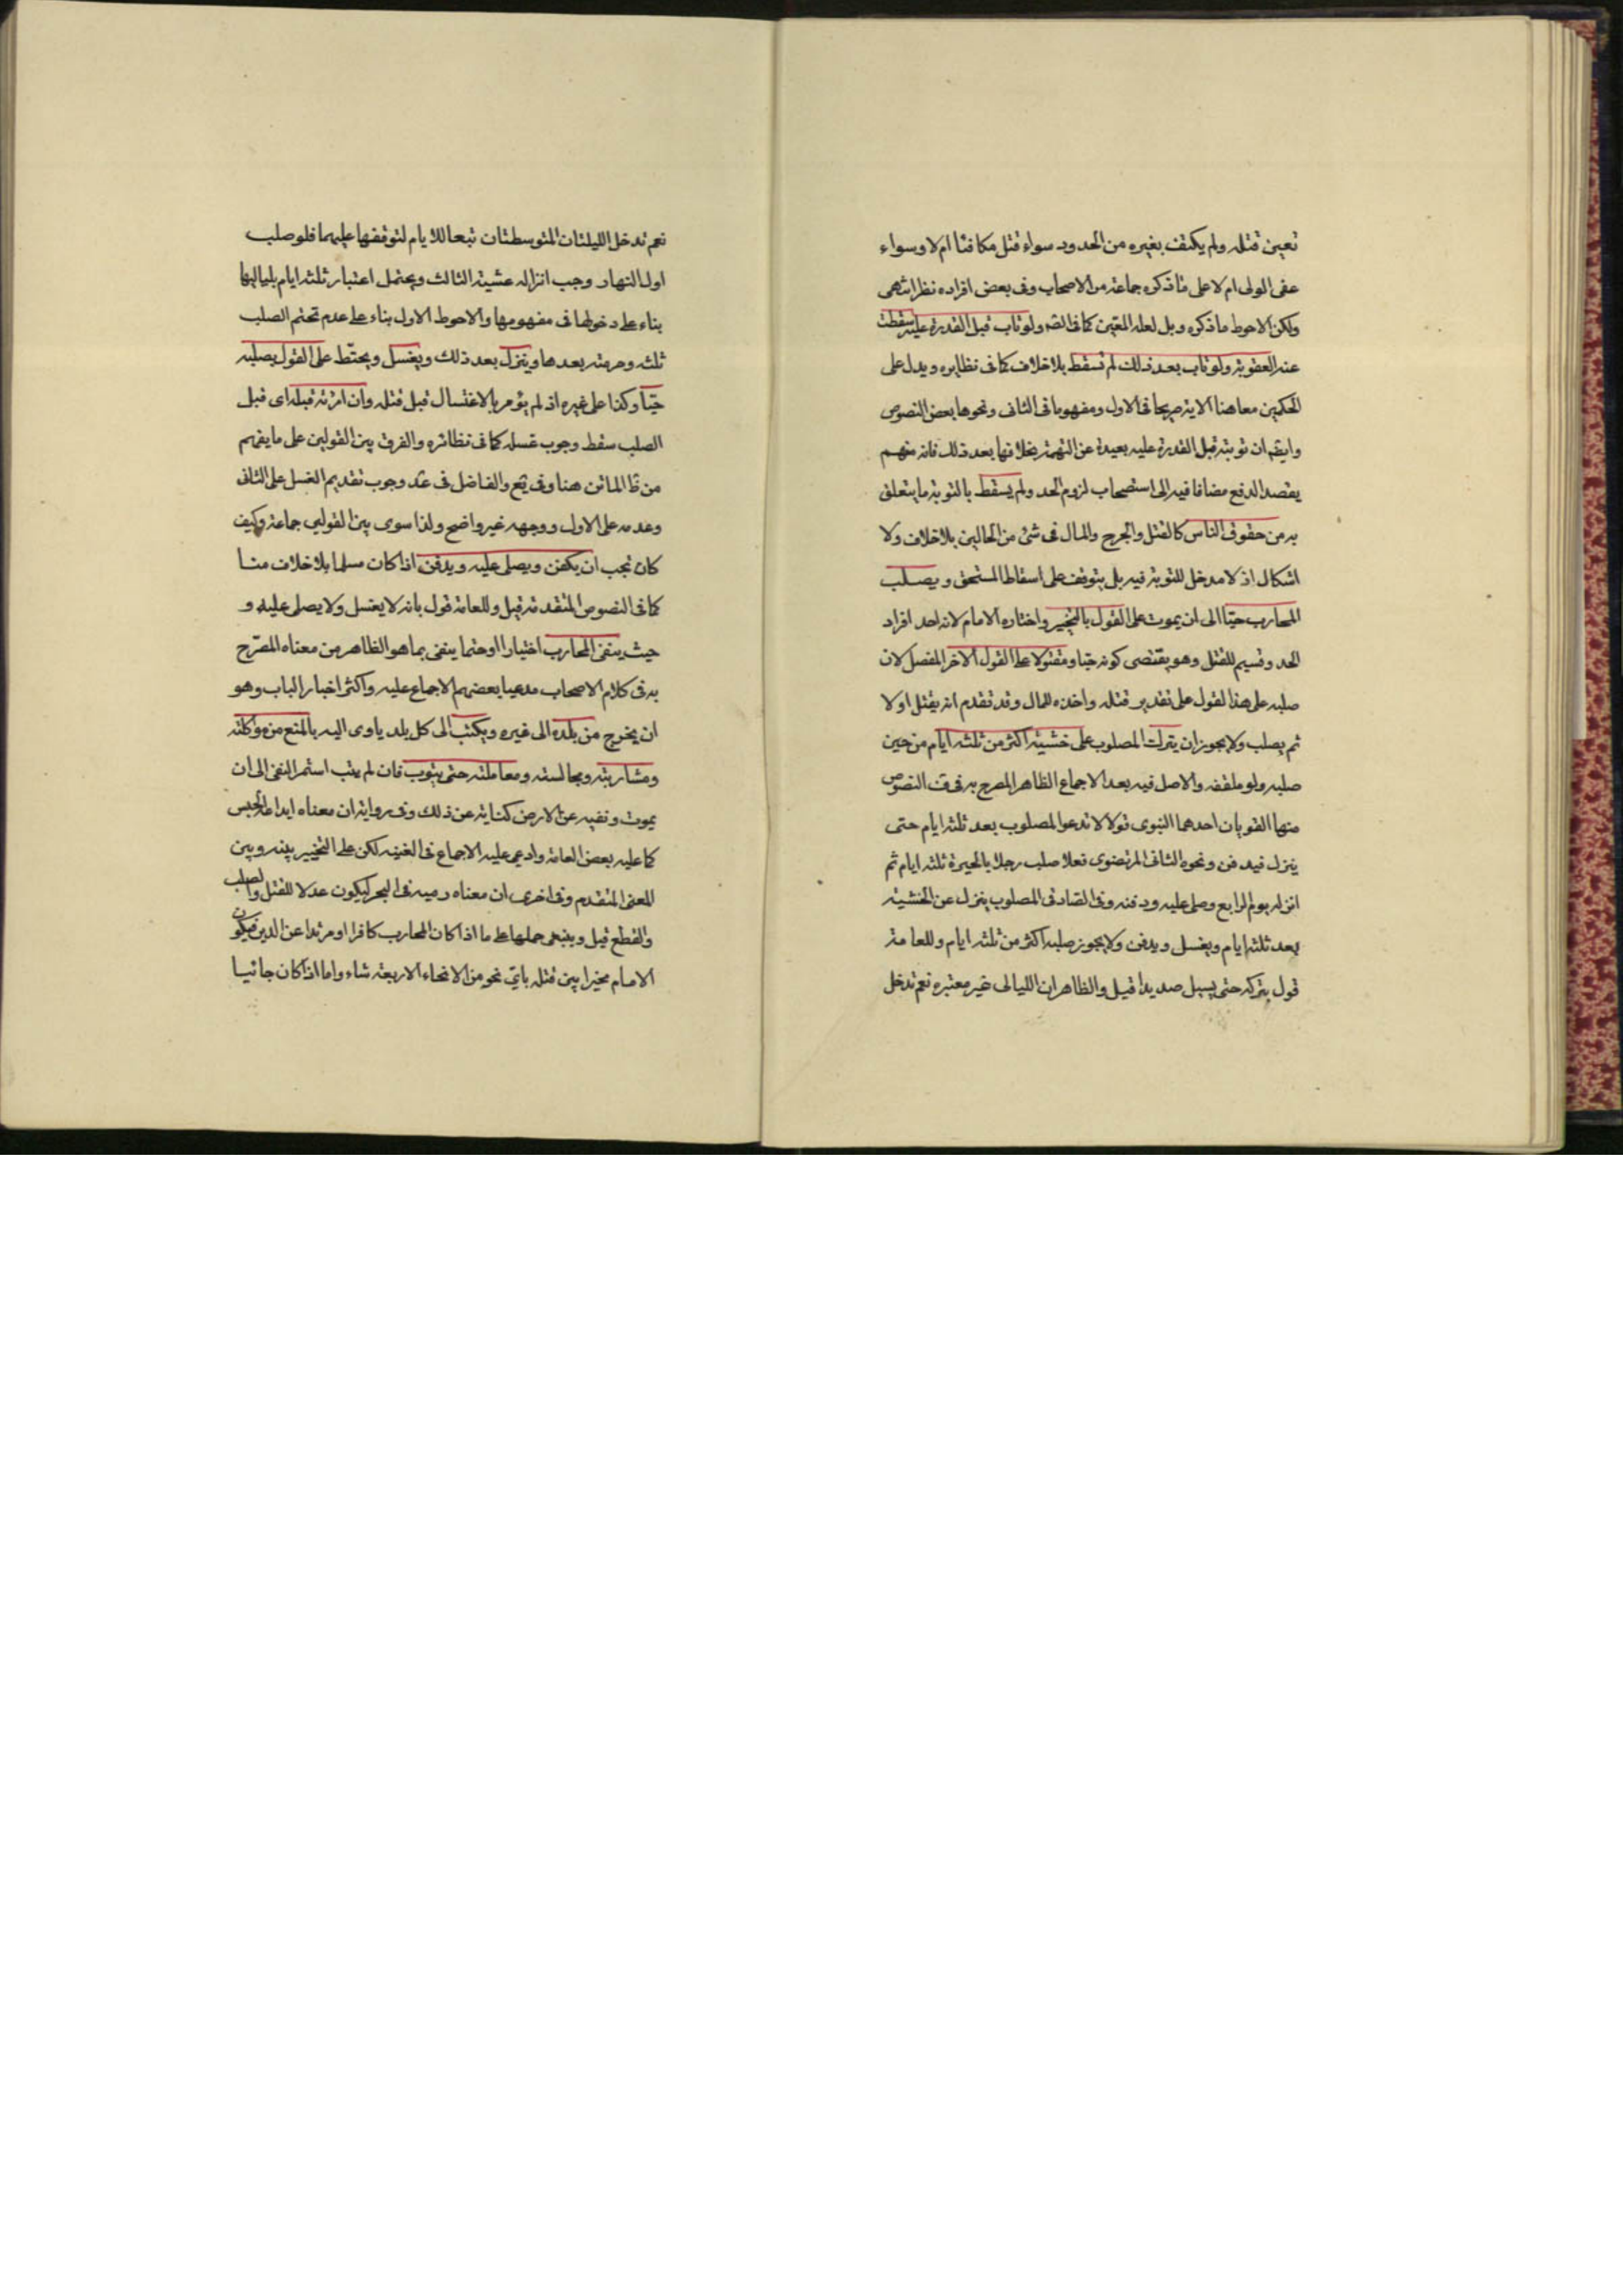 تعين قتله ولم يكتف بغيره من الحدود سواء قتل مكافئا ام لا وسواء
عفى الولى ام لا على ما ذكره جماعة من الاصحاب وفى بعض افراده نظر انتهى
ولكن الاحوط ما ذكروه بل لعله المتعين كما فى الصه ولو تاب قبل القدرة عليه سقطت
عنه العقوبة ولو تاب بعد ذلك لم تسقط بلا خلاف كما فى نظايره ويدل على
الحكمين معا هنا الاية صريحا فى الاول ومفهوما فى الثانى ونحوها بعض النصوص
وايضا ان توبته قبل القدرة عليه بعيدة عن التهمة بخلافها بعد ذلك فانه متهم
بقصد الدفع مضافا فيه الى استصحاب لزوم الحد ولم يسقط بالتوبة ما يتعلق
به من حقوق الناس كالقتل والجرح والمال فى شئ من الحالين بلا خلاف ولا
اشكال اذ لا مدخل للتوبة فيه بل يتوقف على اسقاط المستحق ويصلب
المحارب حيّا الى ان يموت على القول بالتخيير واختاره الامام لانه احد افراد
الحد وقسيم للقتل وهو يقتضى كونه حيّا ومقتولا على القول الاخر المفصل لان
صلبه على هذا القول على تقدير قتله واخذه للمال وقد تقدم انه يقتل اولا
ثم يصلب ولا يجوز ان يترك المصلوب على خشبته اكثر من ثلثه ايام من حين
صلبه ولو ملفقه والاصل فيه بعد الاجماع الظاهر المصرح به فى ق النصوص
منها القويان احدهما النبوى قولا لا تدعوا المصلوب بعد ثلثه ايام حتى
ينزل فيدفن ونحوه الثانى المرتضوى فعلا صلب رجلا بالحيرة ثلثه ايام ثم
انزله يوم الرابع وصلى عليه ودفنه وفى الصادقى المصلوب ينزل عن الخشبة
بعد ثلثه ايام ويغسل ويدفن ولا يجوز صلبه اكثر من ثلثه ايام وللعامة
قول بتركه حتى يسيل صديدا قيل والظاهر ان الليالى غير معتبره نعم تدخل
نعم تدخل الليلتان المتوسطتان تبعا للايام لتوقفها عليهما فلو صلب
اول النهار وجب انزاله عشية الثالث ويحتمل اعتبار ثلثه ايام بلياليها
بناء على دخولها فى مفهومها والاحوط الاول بناء على عدم تحتم الصلب
ثلثه وحرمته بعدها وينزل بعد ذلك ويغسل ويحنّط على القول بصلبه
حيّا وكذا على غيره اذ لم يؤمر بالاغتسال قبل قتله وان امر به قبله اى قبل
الصلب سقط وجوب غسله كما فى نظائره والفرق بين القولين على ما يفهم
من ظ الماتن هنا وفى يع والفاضل فى عد وجوب تقديم الغسل على الثانى
وعدمه على الاول ووجهه غير واضح ولذا سوى بين القولين جماعة وكيف
كان يجب ان يكفن ويصلى عليه ويدفن اذا كان مسلما بلا خلاف منا
كما فى النصوص المتقدمة قيل وللعامة قول بانه لا يغسل ولا يصلى عليه و
حيث ينفى المحارب اختيارا او حتما ينفى بما هو الظاهر من معناه المصّرح
به فى كلام الاصحاب مدعيا بعضهم الاجماع عليه واكثر اخبار الباب وهو
ان يخرج من بلده الى غيره ويكتب الى كل بلد ياوى اليه بالمنع من مؤاكلته
ومشاربته ومجالسته ومعاملته حتى يتوب فان لم يتب استمر النفى الى ان
يموت ونفيه عن الارض كناية عن ذلك وفى رواية ان معناه ايداعه الحبس
كما عليه بعض العامة وادعى عليه الاجماع فى الغنيه لكن على التخيير بينه وبين
المعنى المتقدم وفى اخرى ان معناه رميه فى البحر ليكون عدلا للقتل والصلب
والقطع قيل وينبغى حملها على ما اذا كان المحارب كافرا او مرتدا عن الدين فيكون
الامام مخيرا بين قتله باى نحو من الانحاء الاربعة شاء واما اذا كان جانيا